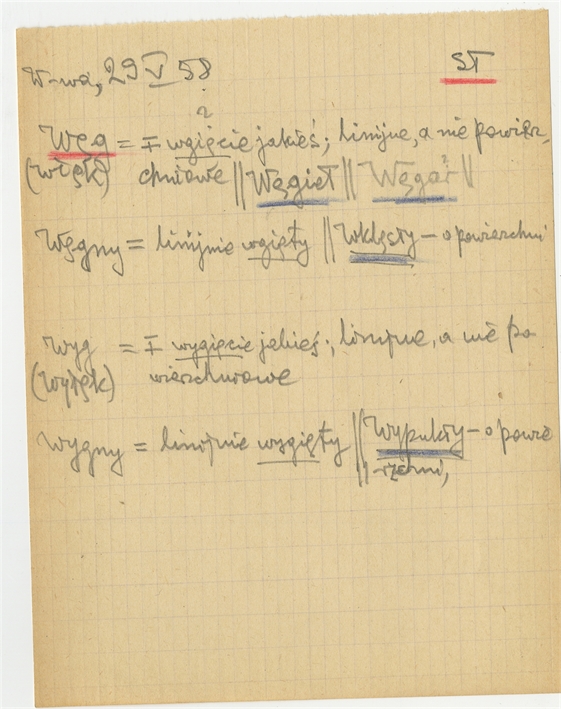 W-wa, 29 V 58 ST
?
Węg = ∓ wgięcie jakieś; linijne, a nie powierz,
(Więk) chniowe || Węgieł || Węgar ? ||
Węgny = linijnie wgięty || Wklęsły – o powierzchni
Wyg = ∓ wygięcie jakieś; linijne, a nie po
(Wyięk) wierzchniowe
Wygny = linijnie wygięty || Wypukły – o powie
|| -rzchni,